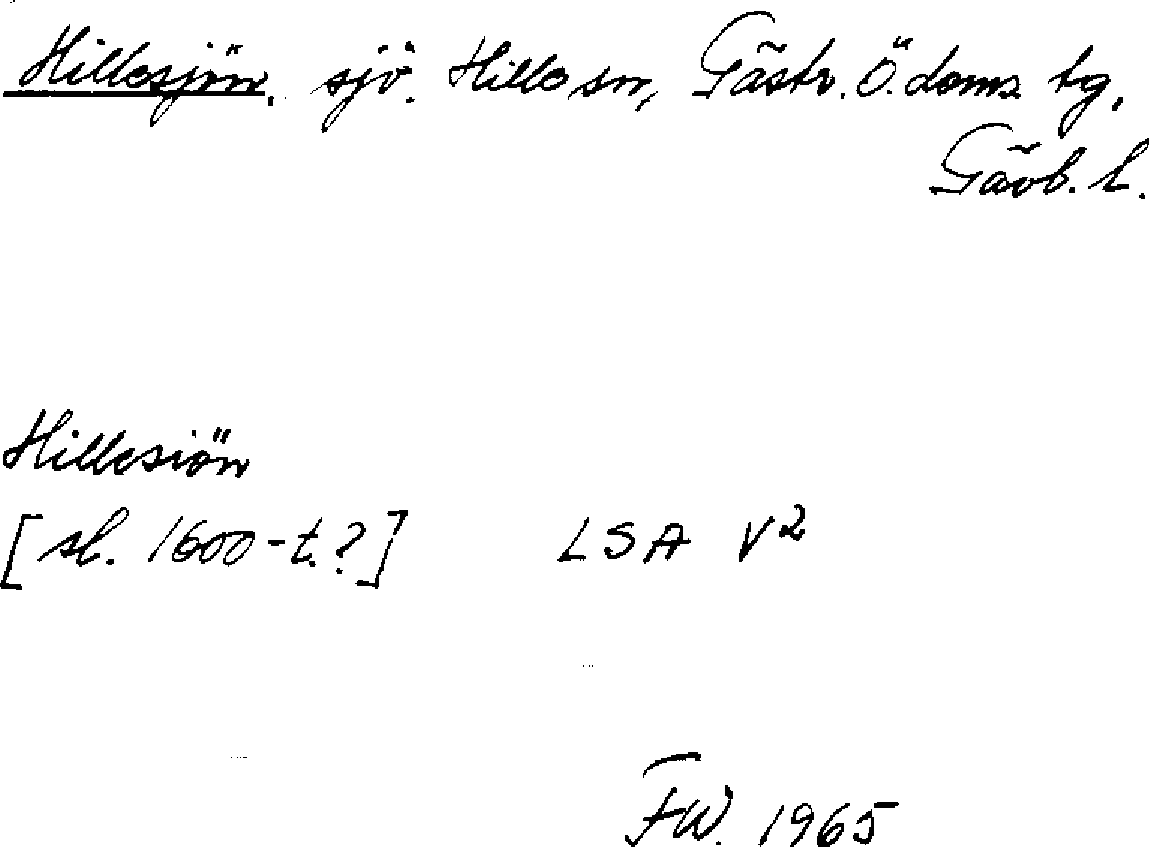 Hillesjön, sjö. Hille sn, Gästr. Ö. doms. tg,
Gävb. l.
Hillesiön
[sl. 1600-t.?] LSA V²
FW. 1965